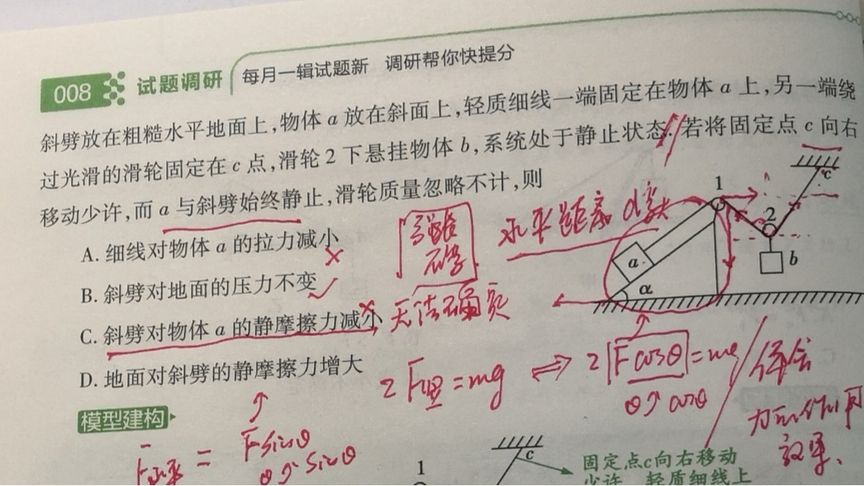 008 试题调研 每月一辑试题新 调研帮你快提分
斜劈放在粗糙水平地面上,物体 a 放在斜面上,轻质细线一端固定在物体 a 上,另一端绕
过光滑的滑轮固定在 c 点,滑轮 2 下悬挂物体 b,系统处于静止状态. 若将固定点 c 向右
移动少许,而 a 与斜劈始终静止,滑轮质量忽略不计,则
A. 细线对物体 a 的拉力减小
B. 斜劈对地面的压力不变
C. 斜劈对物体 a 的静摩擦力减小
D. 地面对斜劈的静摩擦力增大
水平距离 d
无法确定
1
2
c
a
b
α
2F竖=mg ⇔ 2Fcosθ=mg
θ↗ cosθ
体会
力的作用
效果
模型建构
= Fsinθ
θ↗ sinθ
1
c
固定点c向右移动
少许，轻质细线上